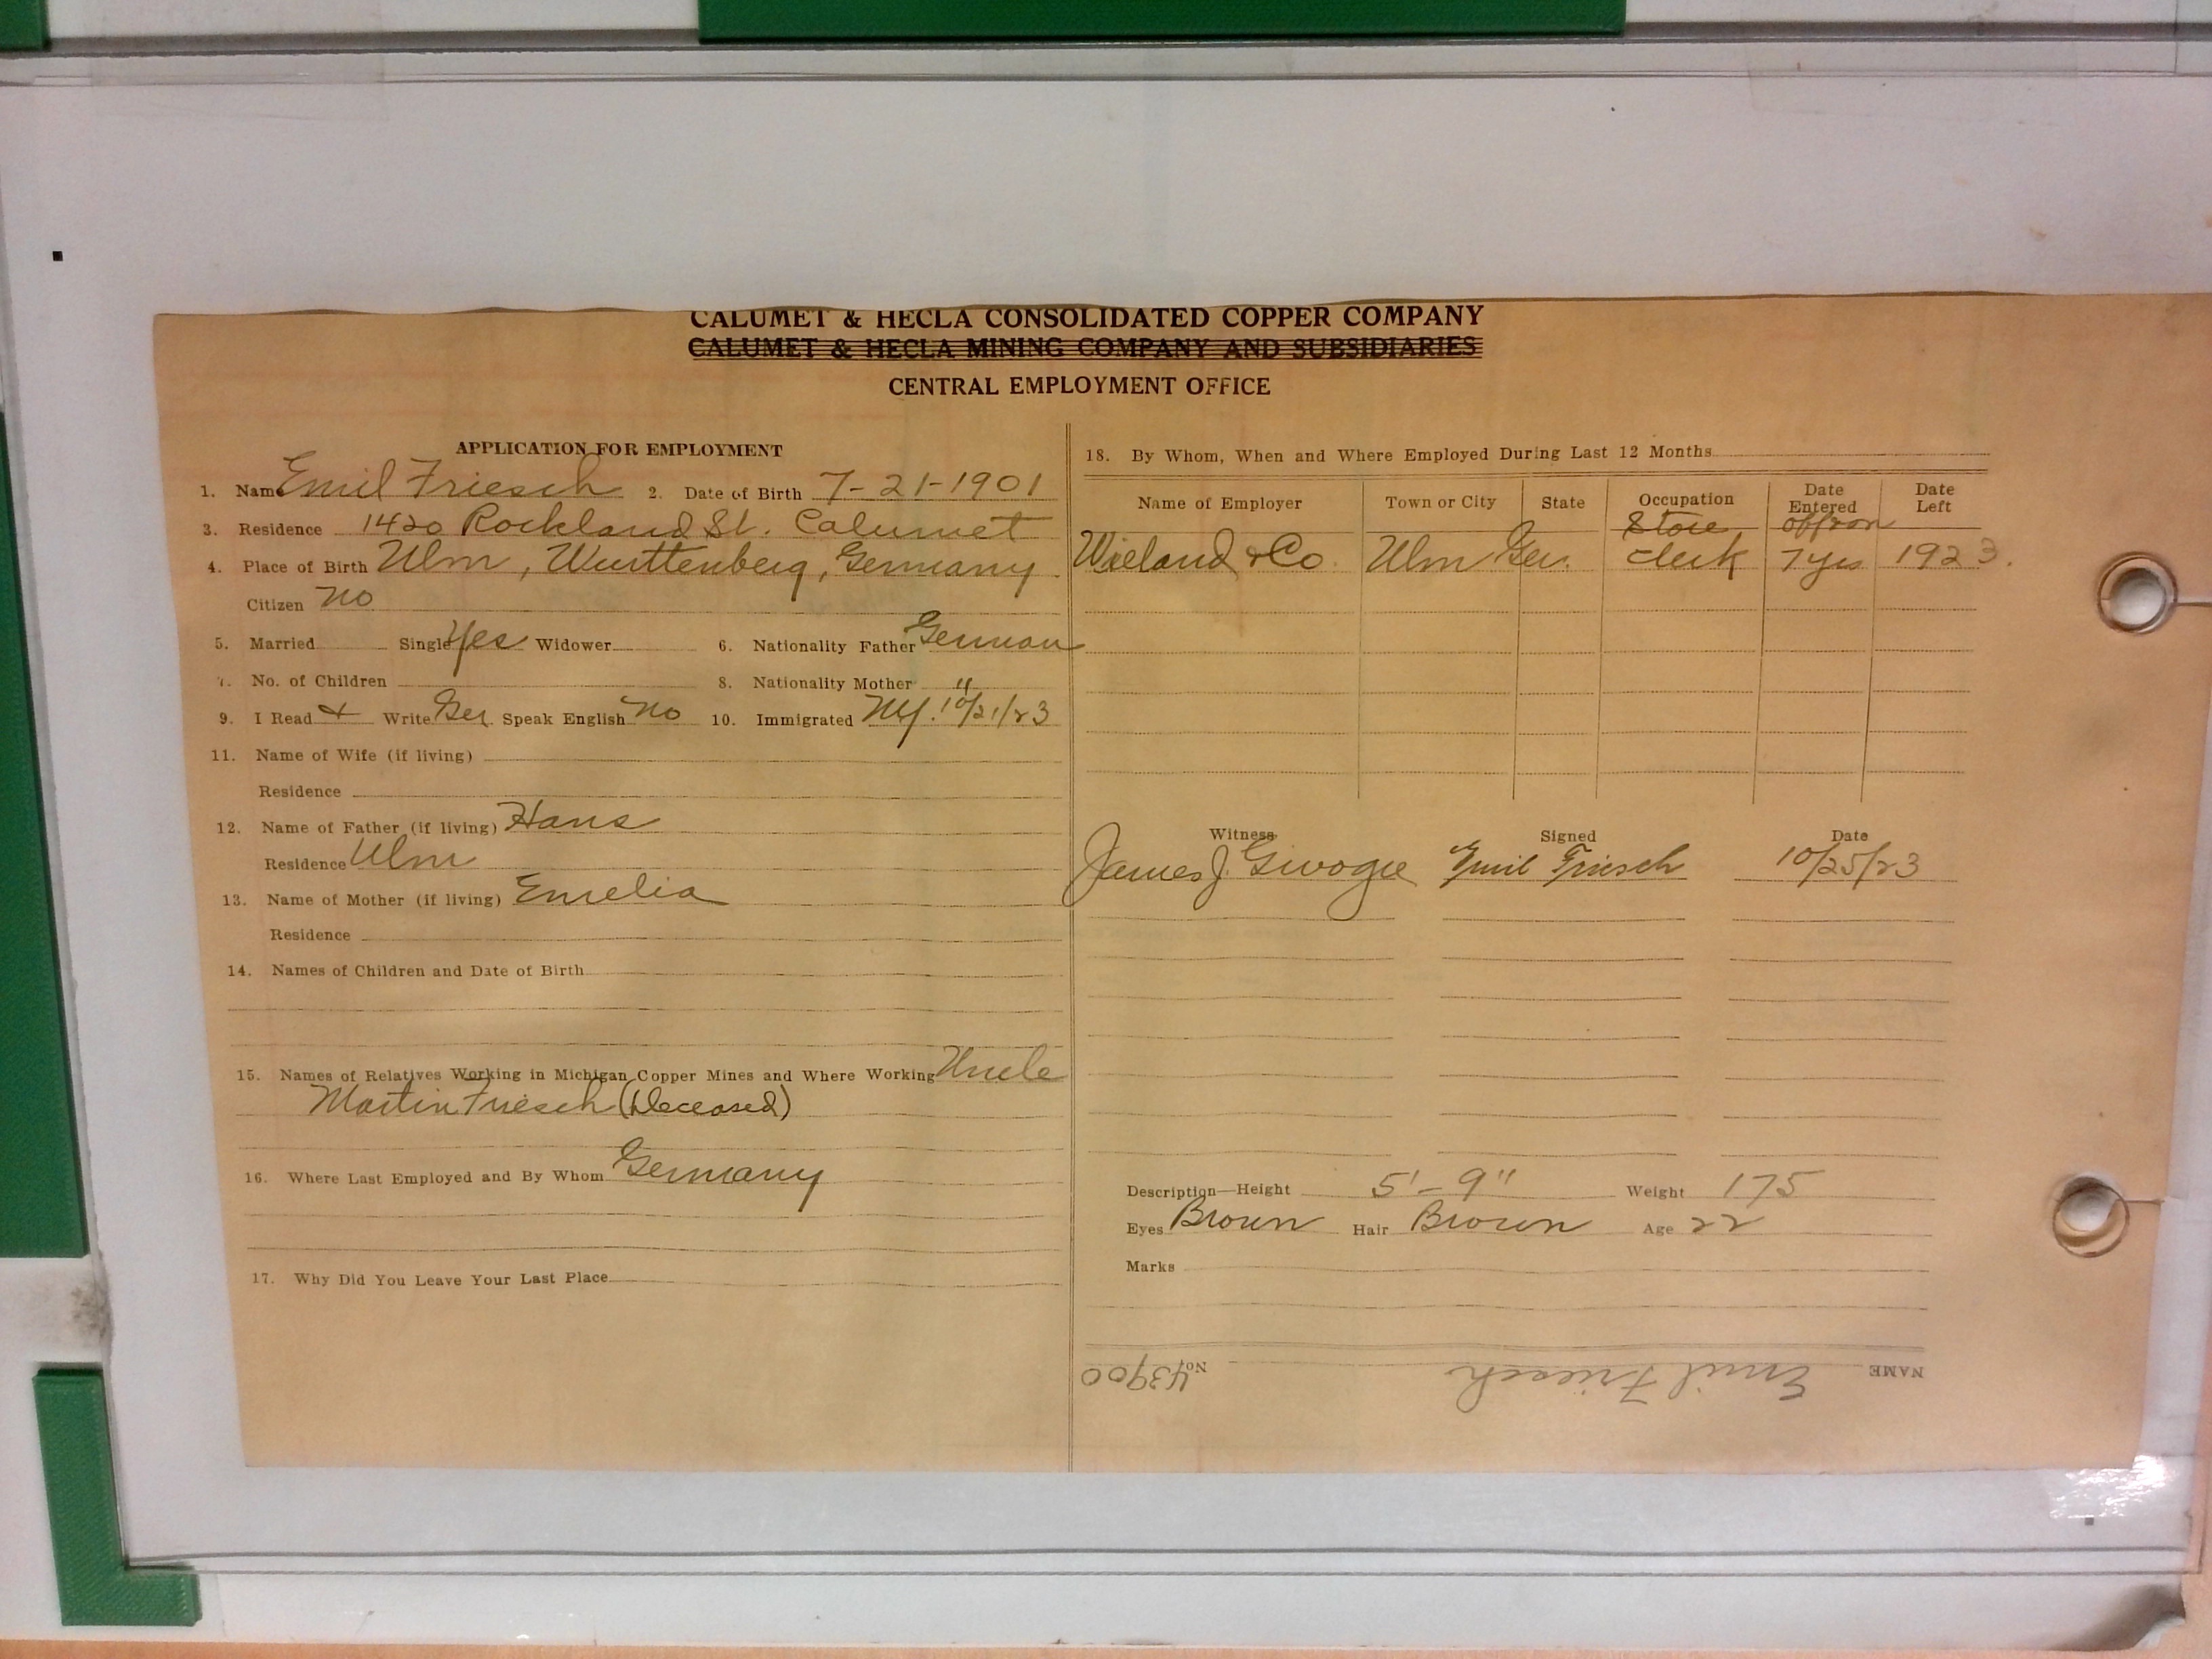 CALUMET & HECLA CONSOLIDATED COPPER COMPANY
CALUMET & HECLA MINING COMPANY AND SUBSIDIARIES
CENTRAL EMPLOYMENT OFFICE
APPLICATION FOR EMPLOYMENT
1. Name Emil Friesch 2. Date of Birth 7-21-1901
3. Residence 1420 Rockland St. Calumet
4. Place of Birth Ulm, Wurttenberg, Germany
Citizen no
5. Married Single Yes Widower 6. Nationality Father German
7. No. of Children 8. Nationality Mother "
9. I Read & Write Ger Speak English no 10. Immigrated NY. 10/21/23
11. Name of Wife (if living)
Residence
12. Name of Father (if living) Hans
Residence Ulm
13. Name of Mother (if living) Emelia
Residence
14. Names of Children and Date of Birth
15. Names of Relatives Working in Michigan Copper Mines and Where Working Uncle
Martin Friesch (Deceased)
16. Where Last Employed and By Whom Germany
17. Why Did You Leave Your Last Place
18. By Whom, When and Where Employed During Last 12 Months
Name of Employer Town or City State Occupation Date Entered Date Left
Store
Wieland & Co. Ulm Ger. clerk 7 yrs 1923.
Witness Signed Date
James J. Emil Friesch 10/25/23
Description—Height 5'-9" Weight 175
Eyes Brown Hair Brown Age 22
Marks
NAME Emil Friesch No. 43900